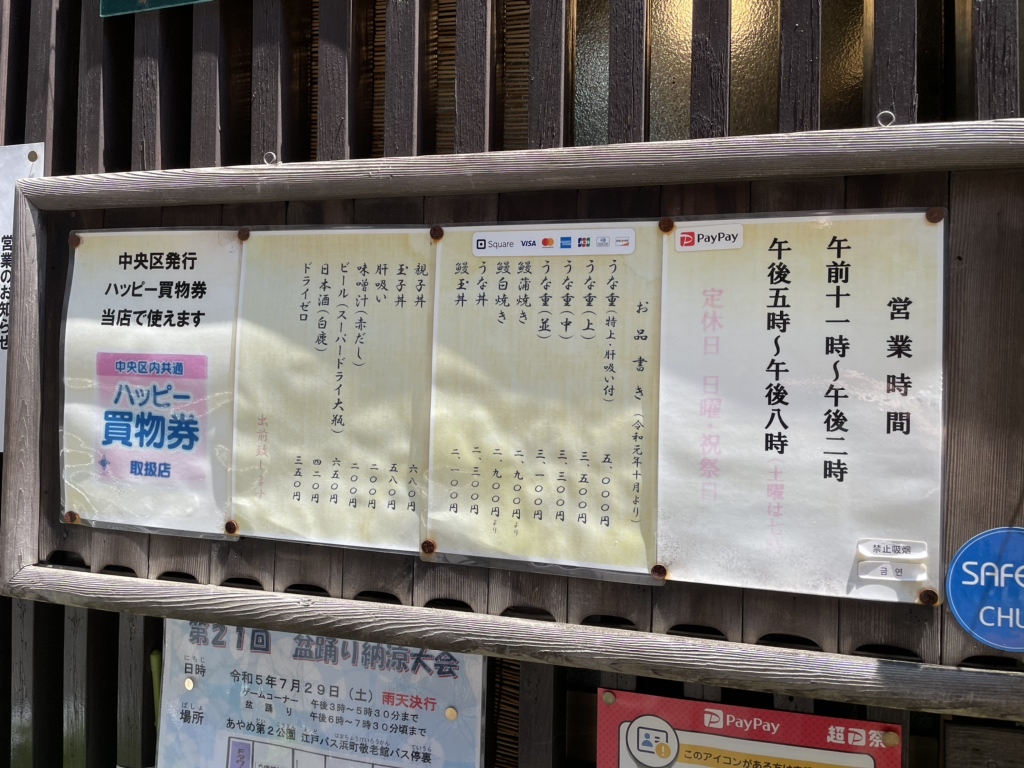 営業時間
午前十一時～午後二時
午後五時～午後八時
土曜は七
定休日　日曜・祝祭日
PayPay
禁止吸烟
금연
Square VISA
お品書き（令和元年十月より）
うな重（特上・肝吸い付）　五、〇〇〇円
うな重（上）　三、五〇〇円
うな重（中）　三、三〇〇円
うな重（並）　三、一〇〇円
鰻蒲焼き　二、九〇〇円より
鰻白焼き　二、九〇〇円より
うな丼　二、三〇〇円
鰻玉丼　二、一〇〇円
親子丼　六八〇円
玉子丼　五八〇円
肝吸い　二〇〇円
味噌汁（赤だし）　二〇〇円
ビール（スーパードライ大瓶）　六五〇円
日本酒（白鹿）　四二〇円
ドライゼロ　三五〇円
出前致します
中央区発行
ハッピー買物券
当店で使えます
中央区内共通
ハッピー
買物券
取扱店
営業のお知らせ
第21回　盆踊り納涼大会
日時
令和5年7月29日（土）雨天決行
ゲームコーナー　午後3時～5時30分まで
盆踊り　午後6時～7時30分頃まで
場所
あやめ第2公園 江戸バス浜町敬老館バス停裏
PayPay
超P祭
SAFE
CHU